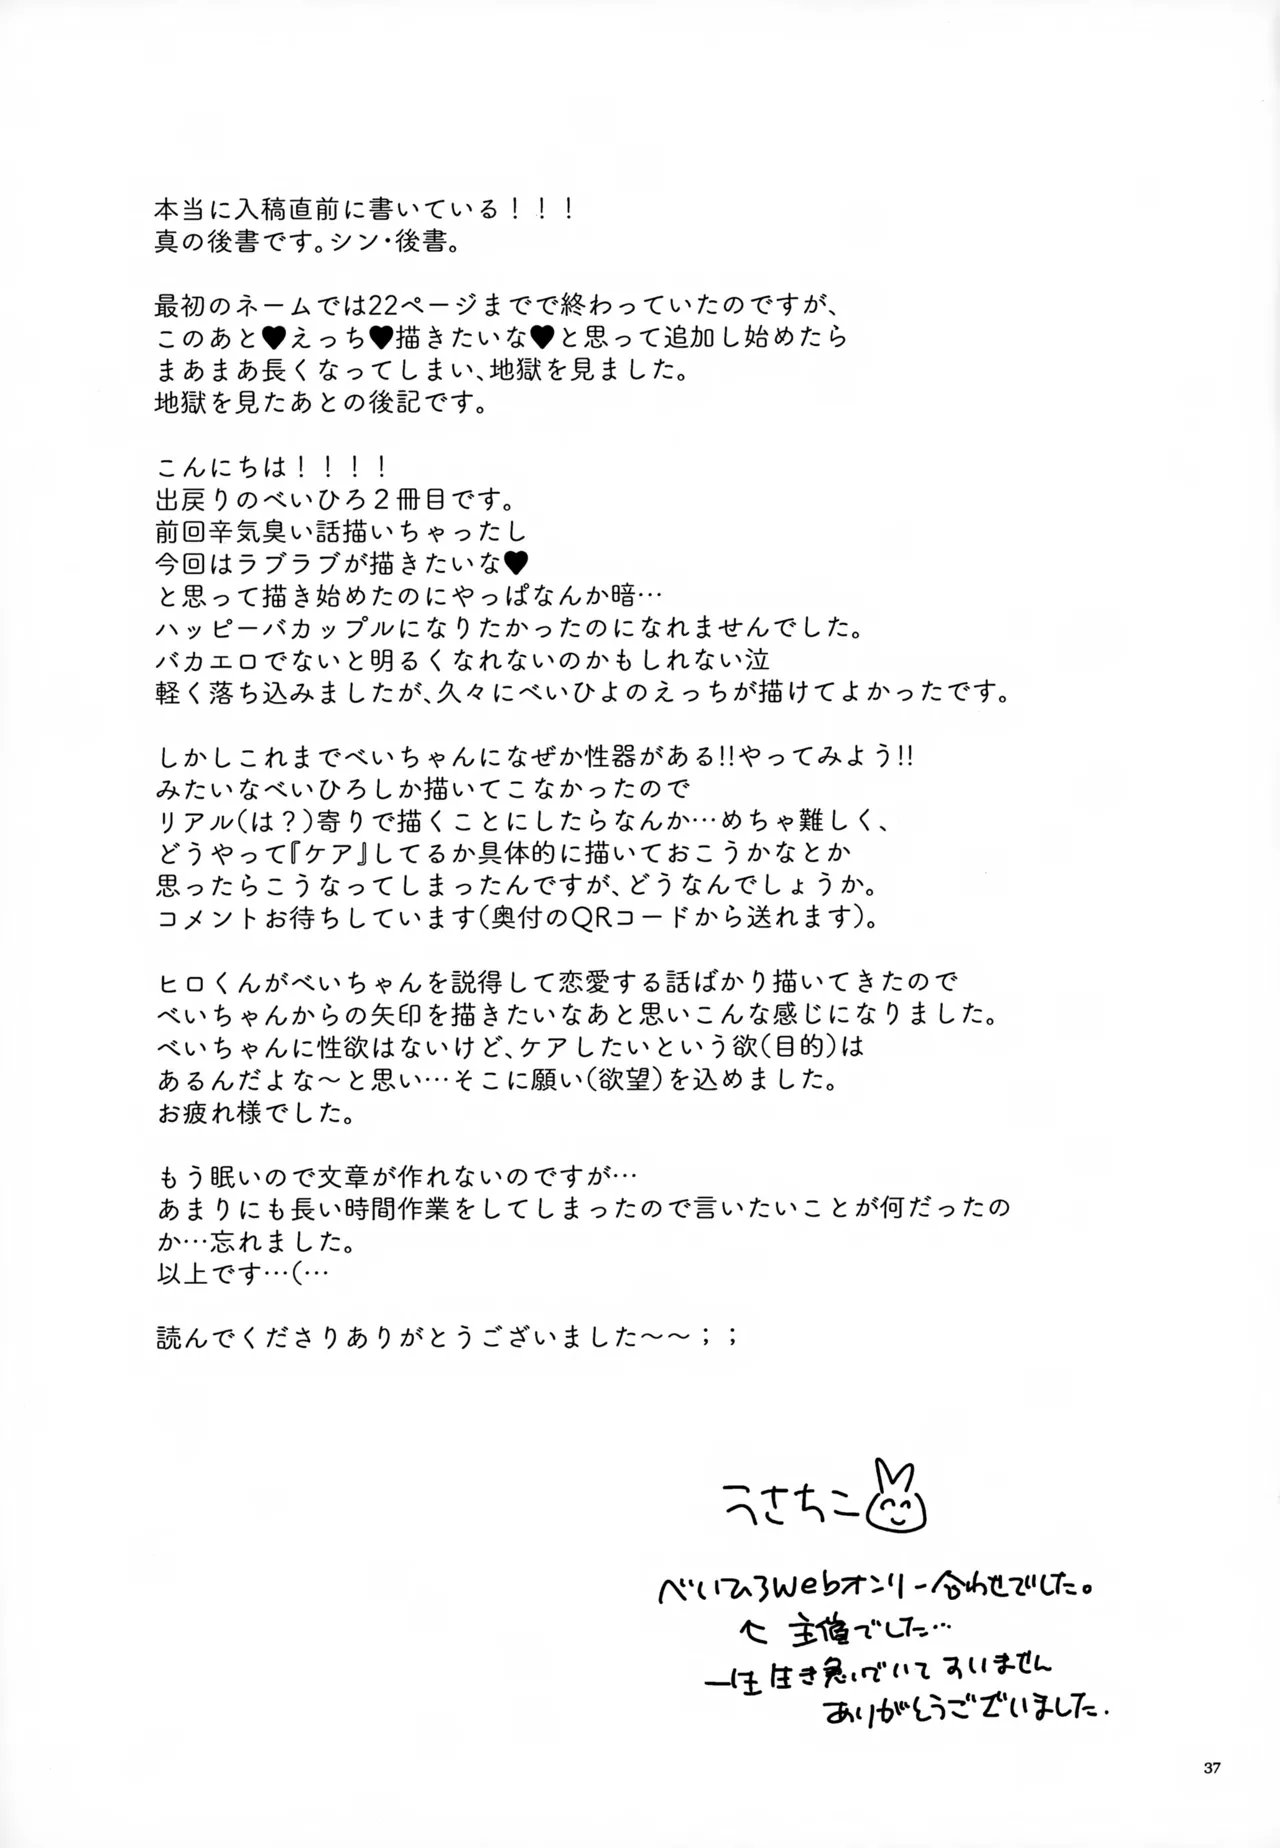 本当に入稿直前に書いている！！！
真の後書です。シン・後書。
最初のネームでは22ページまでで終わっていたのですが、
このあと♥えっち♥描きたいな♥と思って追加し始めたら
まあまあ長くなってしまい、地獄を見ました。
地獄を見たあとの後記です。
こんにちは！！！！
出戻りのべいひろ２冊目です。
前回辛気臭い話描いちゃったし
今回はラブラブが描きたいな♥
と思って描き始めたのにやっぱなんか暗…
ハッピーバカップルになりたかったのになれませんでした。
バカエロでないと明るくなれないのかもしれない泣
軽く落ち込みましたが、久々にべいひよのえっちが描けてよかったです。
しかしこれまでべいちゃんになぜか性器がある!!やってみよう!!
みたいなべいひろしか描いてこなかったので
リアル(は？)寄りで描くことにしたらなんか…めちゃ難しく、
どうやって『ケア』してるか具体的に描いておこうかなとか
思ったらこうなってしまったんですが、どうなんでしょうか。
コメントお待ちしています(奥付のQRコードから送れます)。
ヒロくんがべいちゃんを説得して恋愛する話ばかり描いてきたので
べいちゃんからの矢印を描きたいなあと思いこんな感じになりました。
べいちゃんに性欲はないけど、ケアしたいという欲(目的)は
あるんだよな〜と思い…そこに願い(欲望)を込めました。
お疲れ様でした。
もう眠いので文章が作れないのですが…
あまりにも長い時間作業をしてしまったので言いたいことが何だったの
か…忘れました。
以上です…(…
読んでくださりありがとうございました〜〜；；
うさちこ
べいひろwebオンリー合わせでした。
↖ 主催でした…
一生生き急いでいてすいません
ありがとうございました.
37